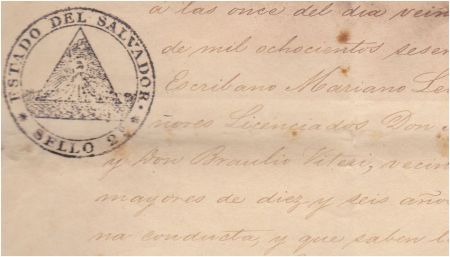 ESTADO DEL SALVADOR.
SELLO 2º
a las once del dia vein
de mil ochocientos sesen
Escribano Mariano Le
ñores Licenciados Don
y Don Braulio Viteri, vecin
mayores de diez y seis año
na conducta, y que saben l